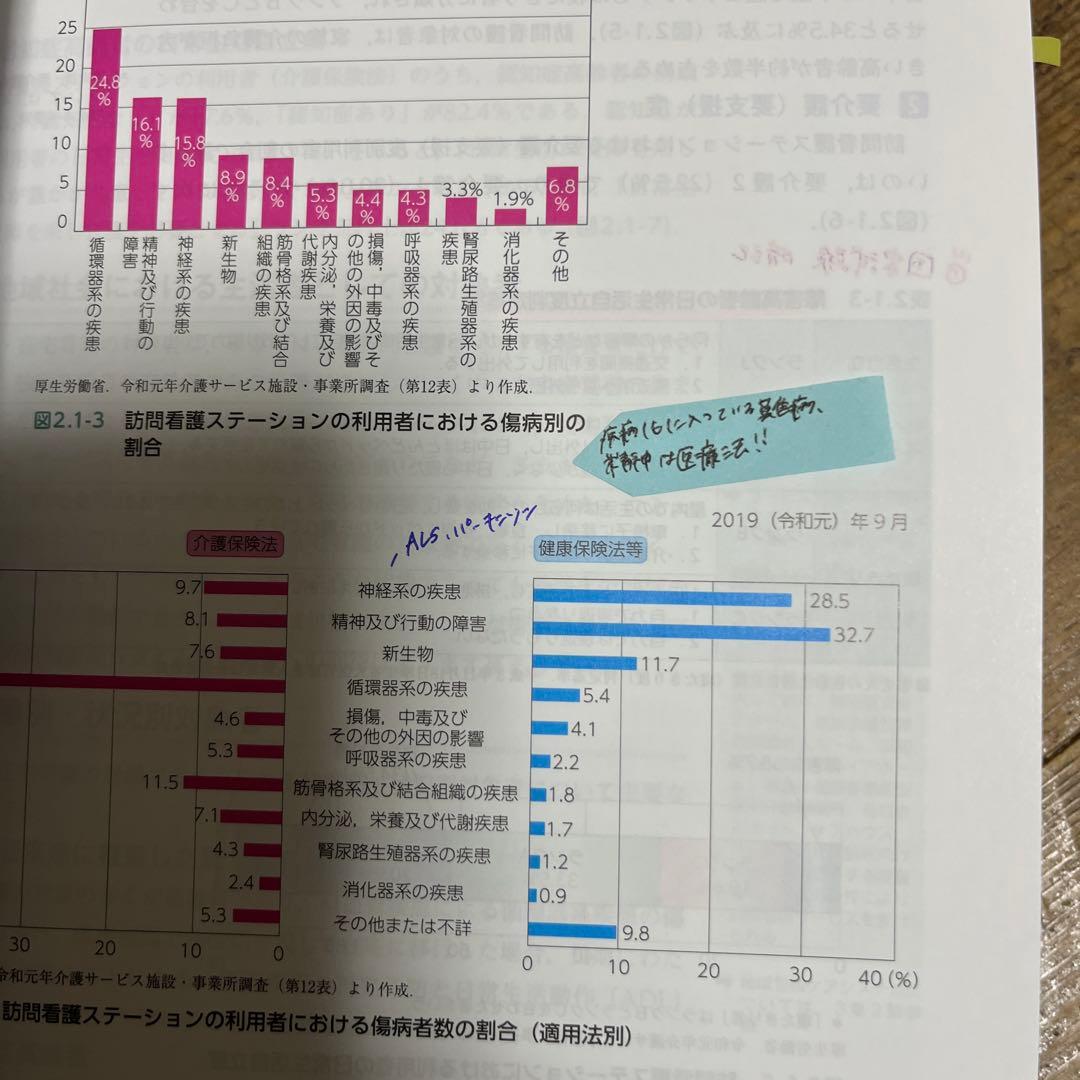 25
20
15
10
5
0
24.8
%
16.1
%
15.8
%
8.9
%
8.4
%
5.3
%
4.4
%
4.3
%
3.3%
1.9%
6.8
%
循環器系の疾患
精神及び行動の
障害
神経系の疾患
新生物
筋骨格系及び結合
組織の疾患
内分泌,栄養及び
代謝疾患
損傷,中毒及びそ
の他の外因の影響
呼吸器系の疾患
腎尿路生殖器系の
疾患
消化器系の疾患
その他
厚生労働省.令和元年介護サービス施設・事業所調査(第12表)より作成.
図2.1-3 訪問看護ステーションの利用者における傷病別の
割合
に入っている
は医療法!!
2019(令和元)年9月
介護保険法
ALS、パーキンソン
健康保険法等
9.7 神経系の疾患 28.5
8.1 精神及び行動の障害 32.7
7.6 新生物 11.7
循環器系の疾患 5.4
4.6 損傷,中毒及び
その他の外因の影響 4.1
5.3 呼吸器系の疾患 2.2
11.5 筋骨格系及び結合組織の疾患 1.8
7.1 内分泌,栄養及び代謝疾患 1.7
4.3 腎尿路生殖器系の疾患 1.2
2.4 消化器系の疾患 0.9
5.3 その他または不詳 9.8
30 20 10 0
0 10 20 30 40(%)
令和元年介護サービス施設・事業所調査(第12表)より作成.
訪問看護ステーションの利用者における傷病者数の割合(適用法別)